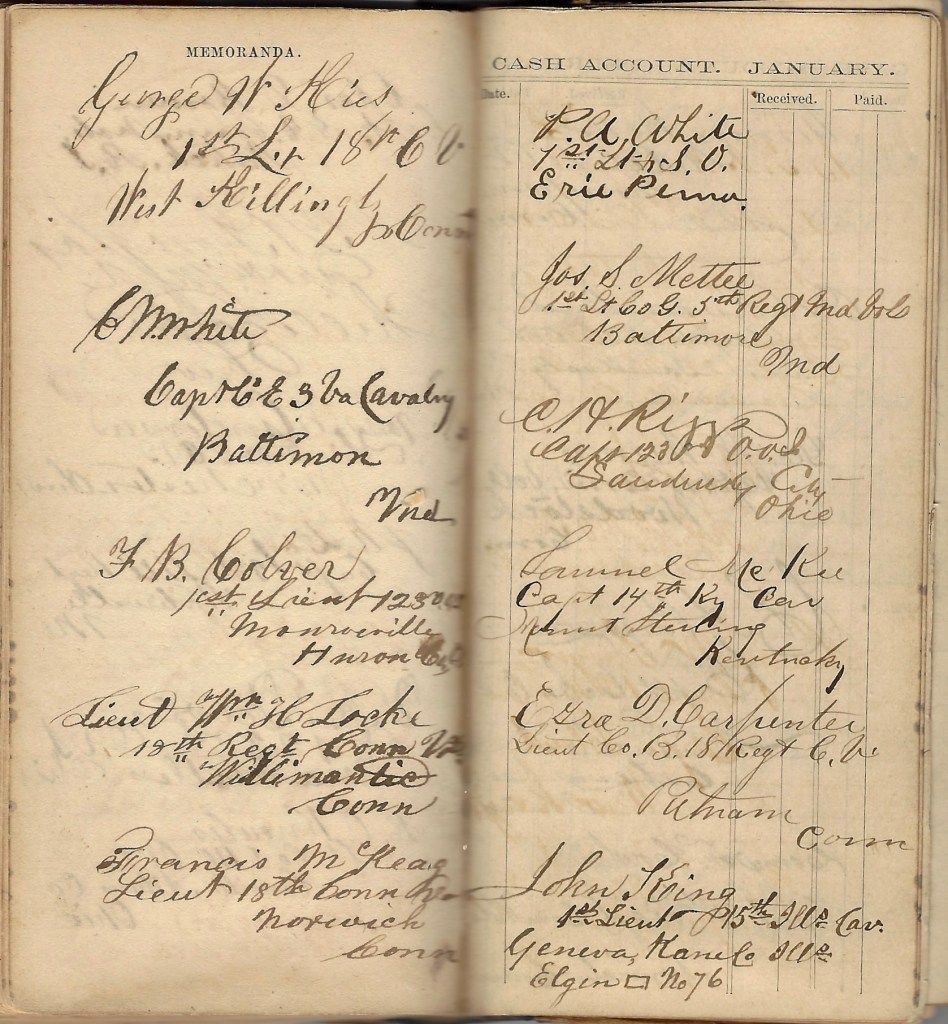 MEMORANDA.
George W Hies
1st Lt 18th C V
West Killingly
Conn
C M White
Capt Co E 3 Va Cavalry
Baltimon
Md
F. B. Colver
1st Lieut 123
Monroeville
Huron Co
Lieut Wm H Locke
18th Regt Conn
Willimantic
Conn
Francis McKeag
Lieut 18th Conn
Norwich
Conn
CASH ACCOUNT. JANUARY.
Date. Received. Paid.
P. A. White
1st Lt S. V.
Erie Penna.
Jos. S. Mettee
1st Lt Co G. 5th Regt Md Vols
Baltimore
Md
C. H. Riggs
Capt 123rd O.V.I
Sandusky City
Ohio
Samuel McKee
Capt 14th Ky Cav
Mount Sterling
Kentucky
Ezra D. Carpenter
Lieut Co. B. 18 Regt C. V.
Putnam
Conn
John King
1st Lieut 15th Ills Cav.
Geneva, Kane Co Ills
Elgin □ No 76